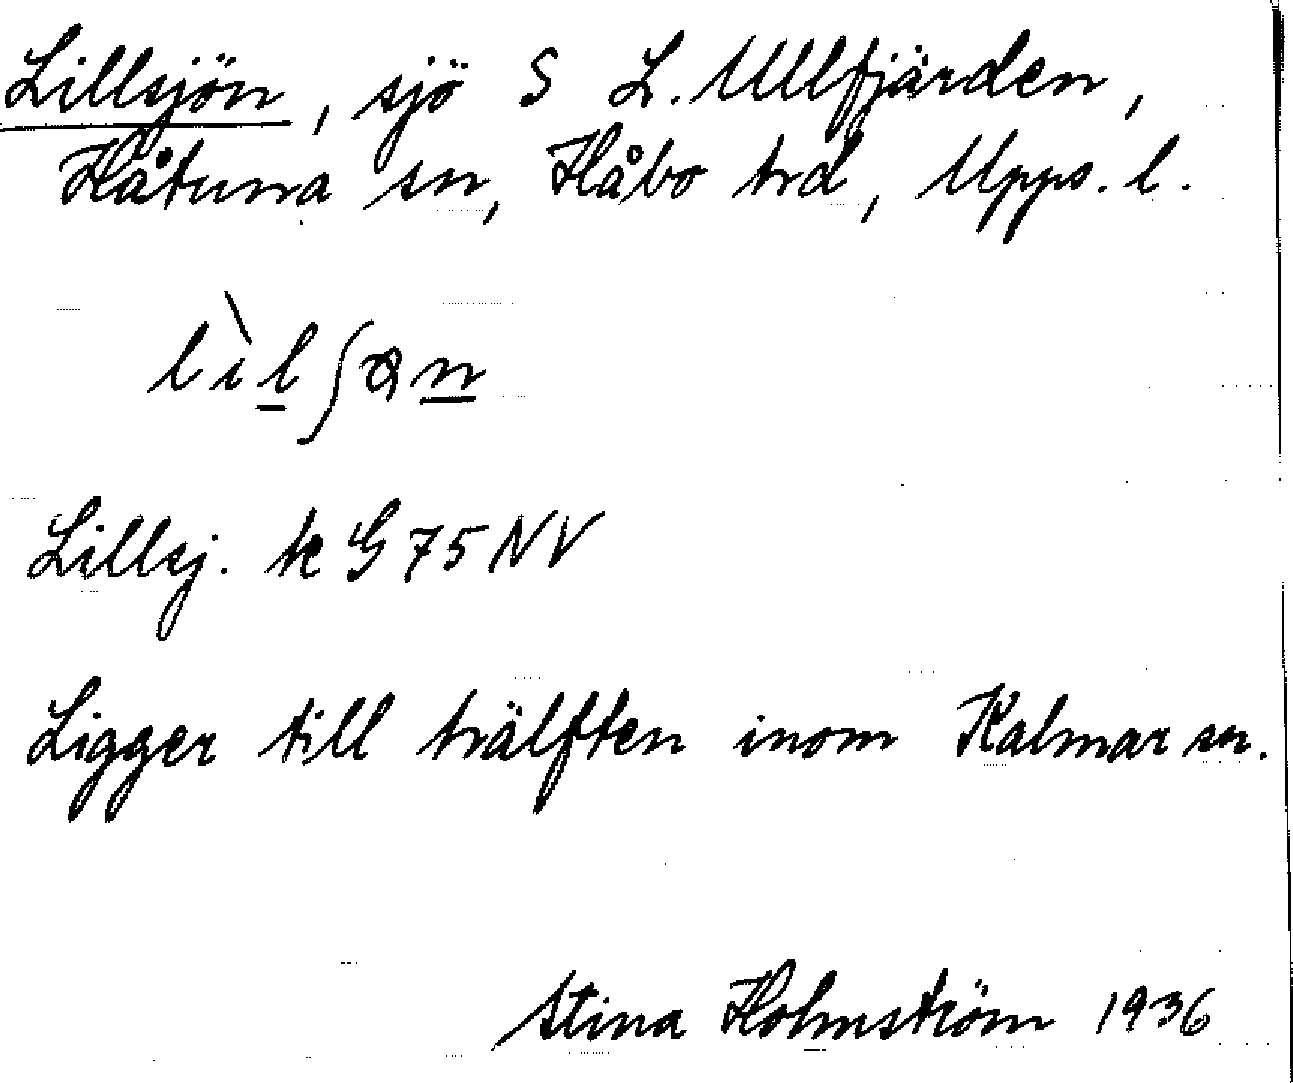 Lillsjön, sjö S L. Ullfjärden,
Håtuna sn, Håbo hrd, Upps. l.
lìlʃɷn
Lillsj. tc G 75 NV
Ligger till hälften inom Kalmar sn.
Stina Holmström 1936